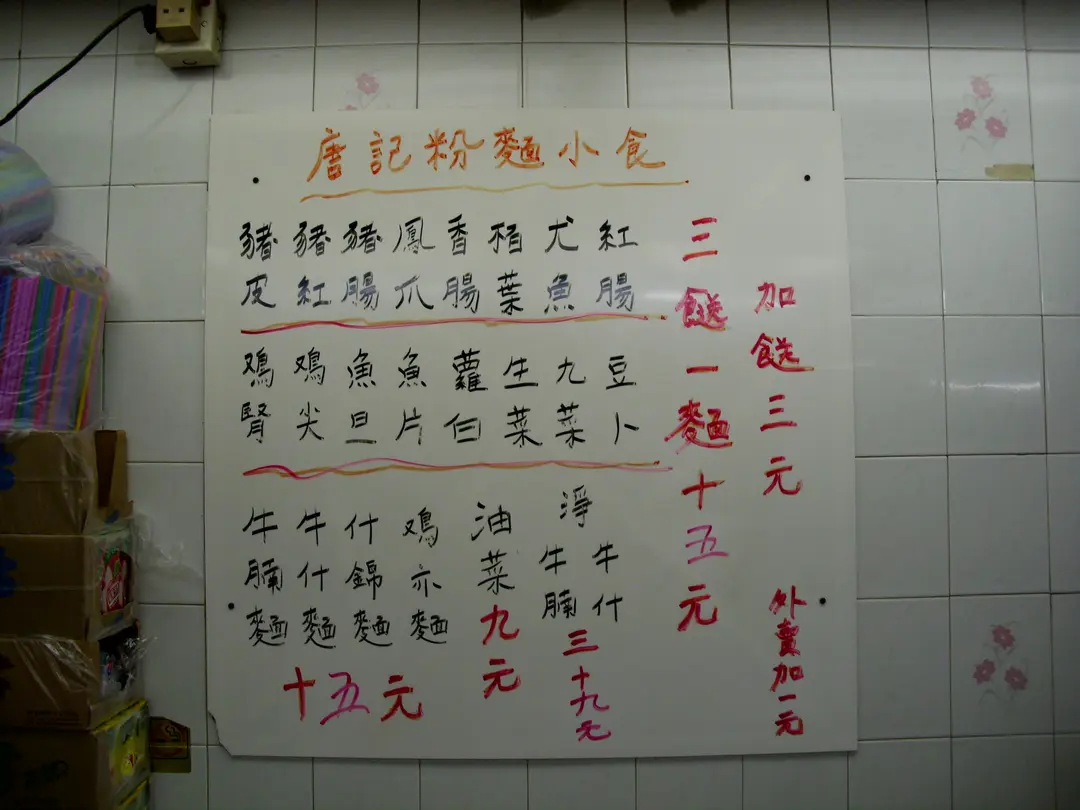 唐記粉麵小食
豬皮
豬紅
豬腸
鳳爪
香腸
栢葉
尤魚
紅腸
鸡腎
鸡尖
魚旦
魚片
蘿伯
生菜
九菜
豆卜
三餸一麵十五元
加餸三元
牛腩麵
牛什麵
什錦麵
鸡亦麵
十五元
油菜九元
淨
牛腩
牛什
三十九元
外賣加一元